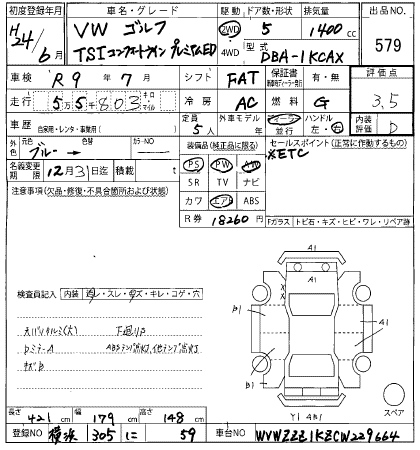 初度登録年月 車名・グレード 駆動 ドア数・形状 排気量 出品NO
H24/6月 VW ゴルフ 2WD 4WD 5 1400cc 579
TSIコンフォートライン プレミアムED 型式 DBA-1KCAX
車検 R9年7月 シフト FAT 保証書 有・無 評価点
走行 55803 キロ マイル 冷房 AC 燃料 G 3.5
車歴 自家用・レンタ・事業用( ) 定員 5人 外車モデル 年 ディーラー 並行 ハンドル 左・右 内装評価 D
外色 元色 ブルー → 色替 カラーNO 装備品(純正品に限る) セールスポイント(正常に作動するもの)
名義変更期限 12月31日迄 積載 t PS PW AW ※ETC
注意事項(欠品・修復・不具合箇所および状態) SR TV ナビ
カワ エアB ABS
R券 18260円
Fガラス トビ石・キズ・ヒビ・ワレ・リペア跡
検査員記入 内装 汚レ・スレ・キズ・キレ・コゲ・穴
下廻りP
ABSランプ点灯
キズB
A1
X
X
B1
B1
A1
A1
Y1 4B1
スペア
長さ 421cm 幅 179cm 高さ 148cm
登録NO 横浜 305 に 59 車台NO WVWZZZ1KZCW229664